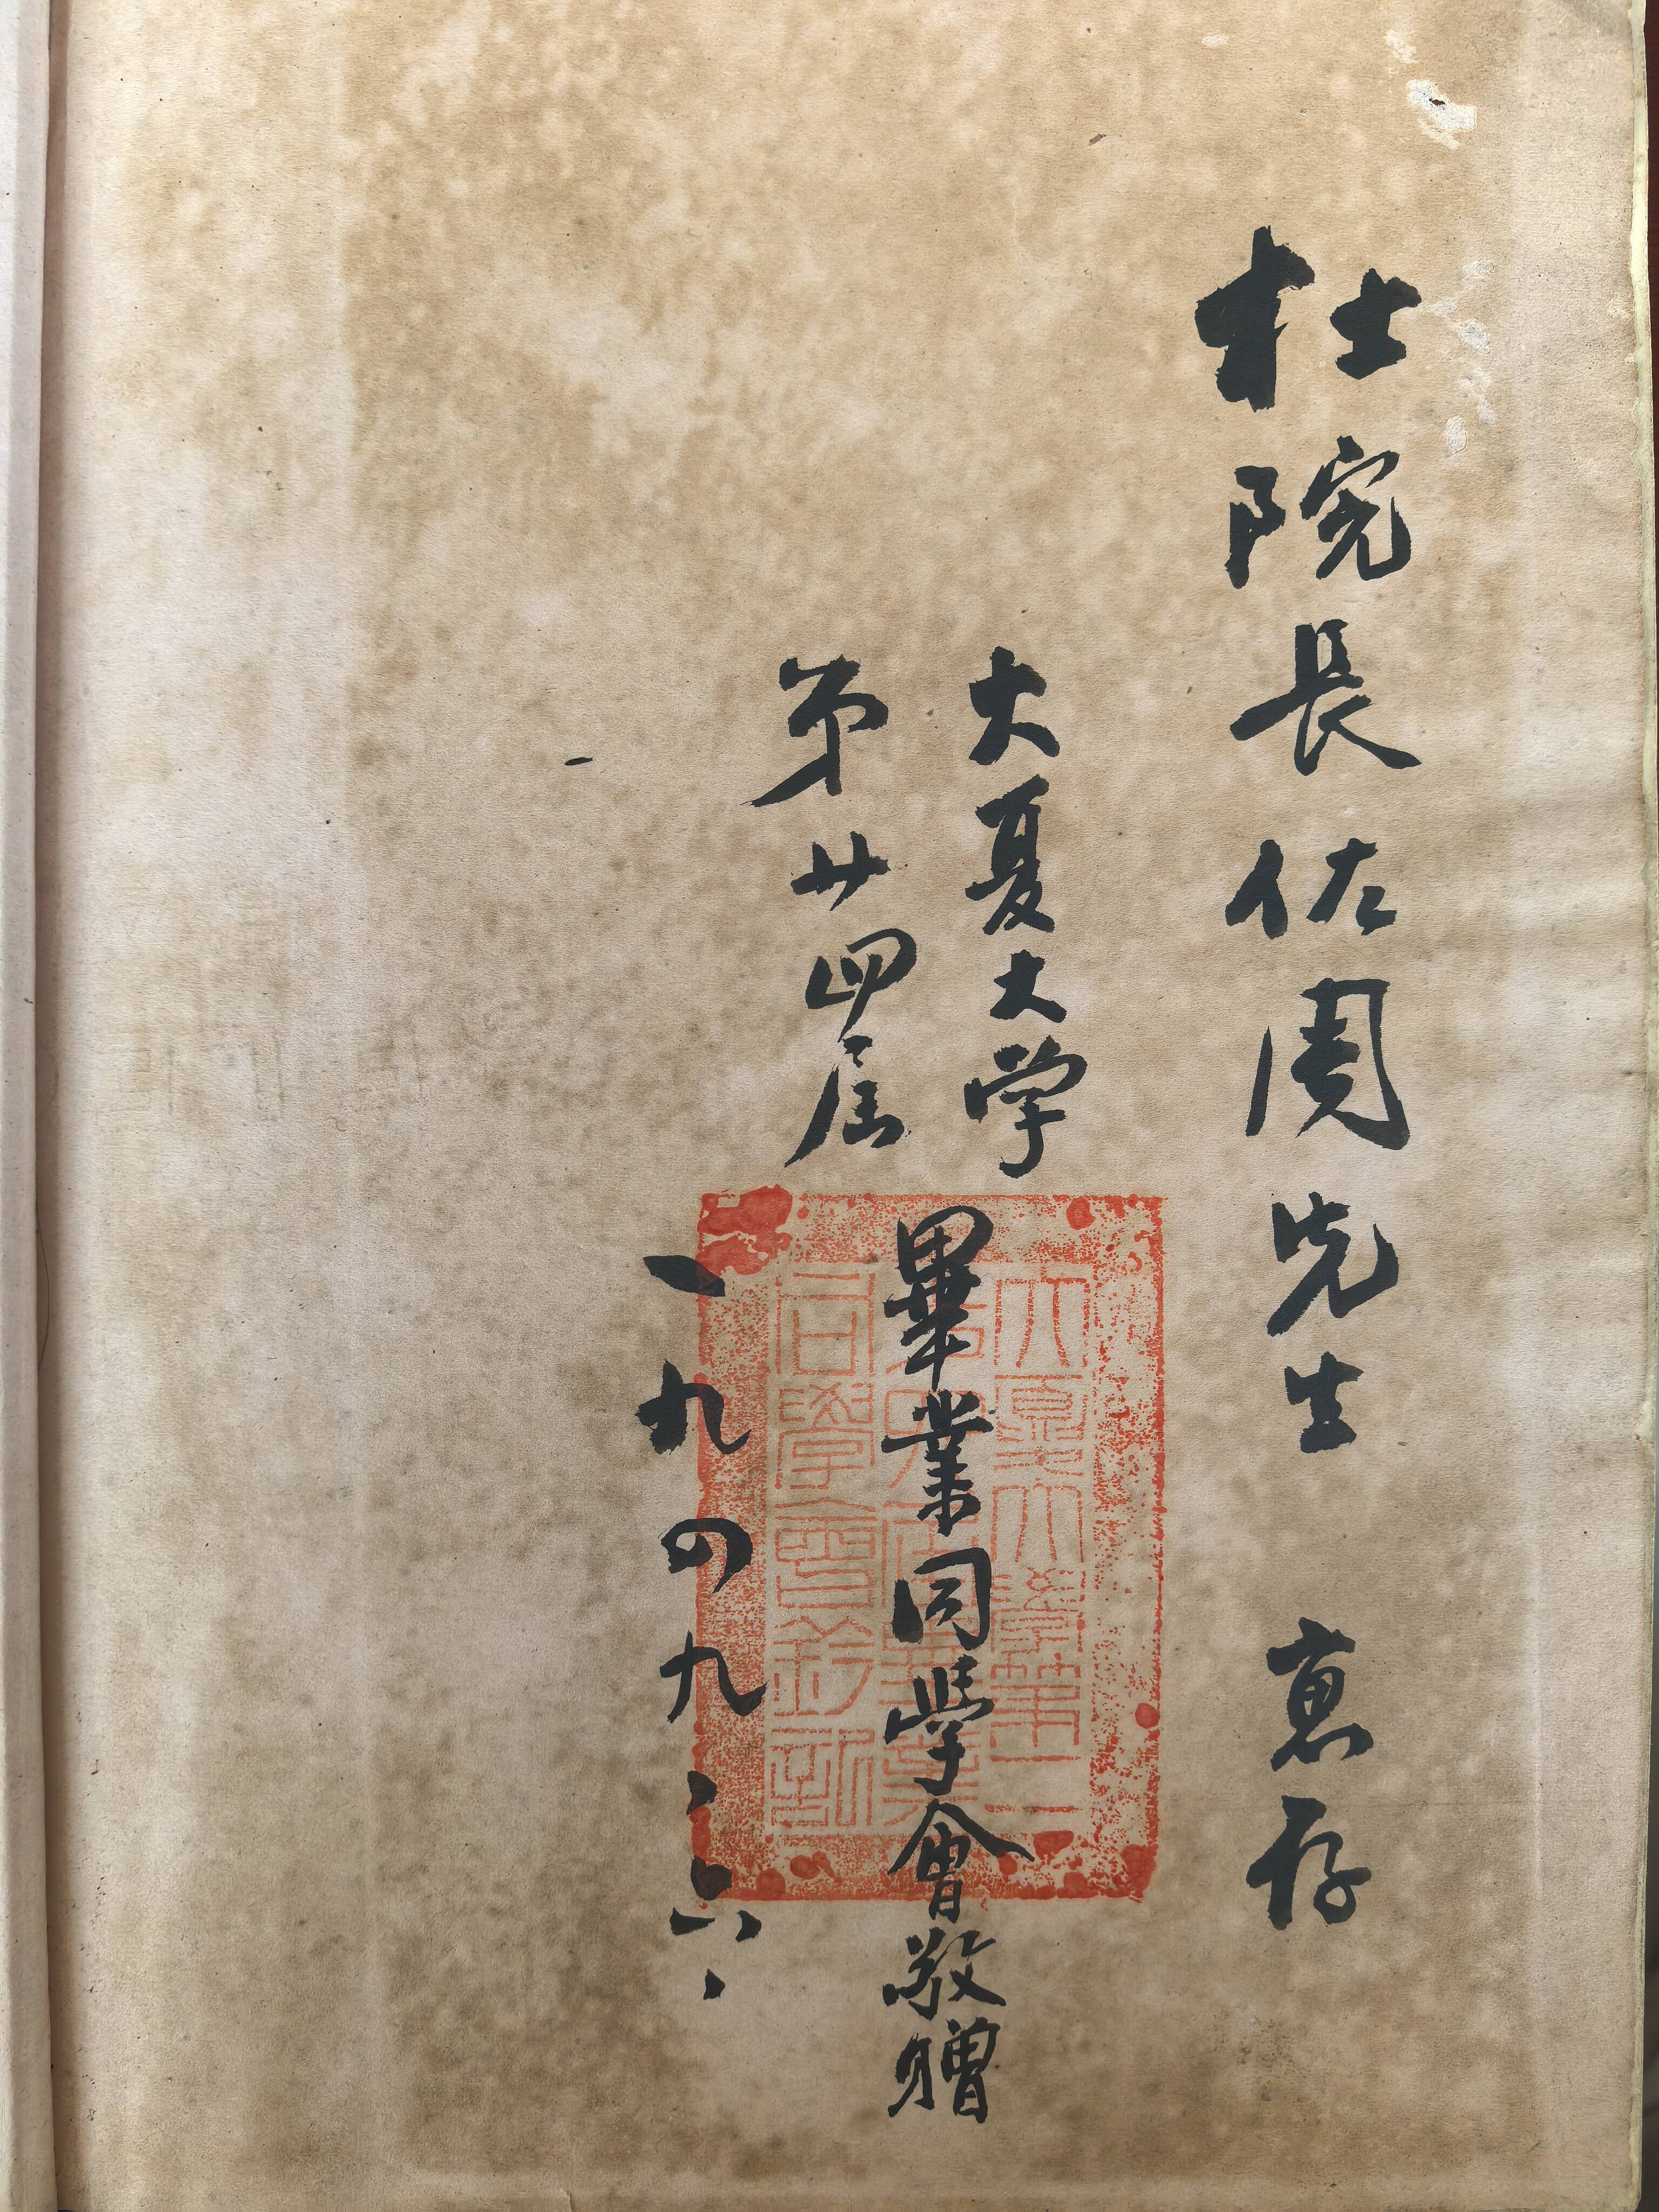 杜院長佐周先生　惠存
大夏大学
第廿四届
畢業同學會敬贈
一九四九、六、
大夏大學第二
十四屆畢業
同學會鈐記